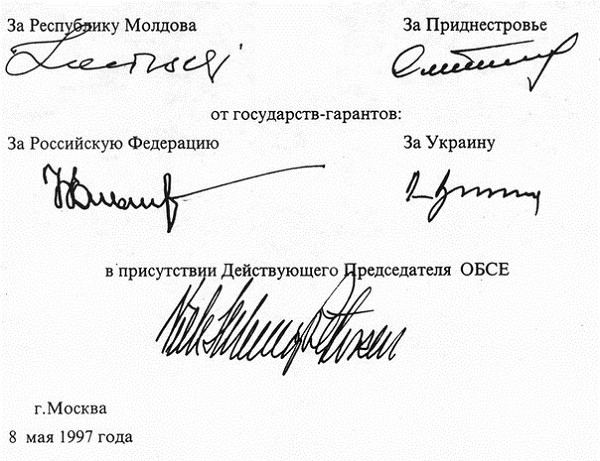 За Республику Молдова За Приднестровье
от государств-гарантов:
За Российскую Федерацию За Украину
в присутствии Действующего Председателя ОБСЕ
г.Москва
8 мая 1997 года